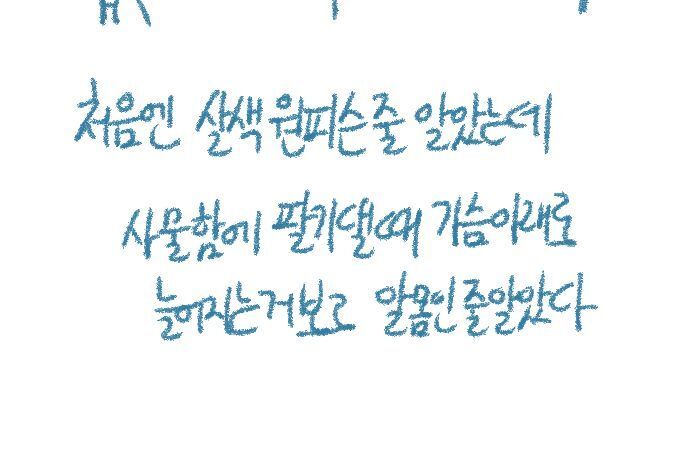 처음엔 살색 원피슨 줄 알았는데
사물함에 팔 기댈 때 가슴 아래로
늘어지는 거 보고 알몸인 줄 알았다